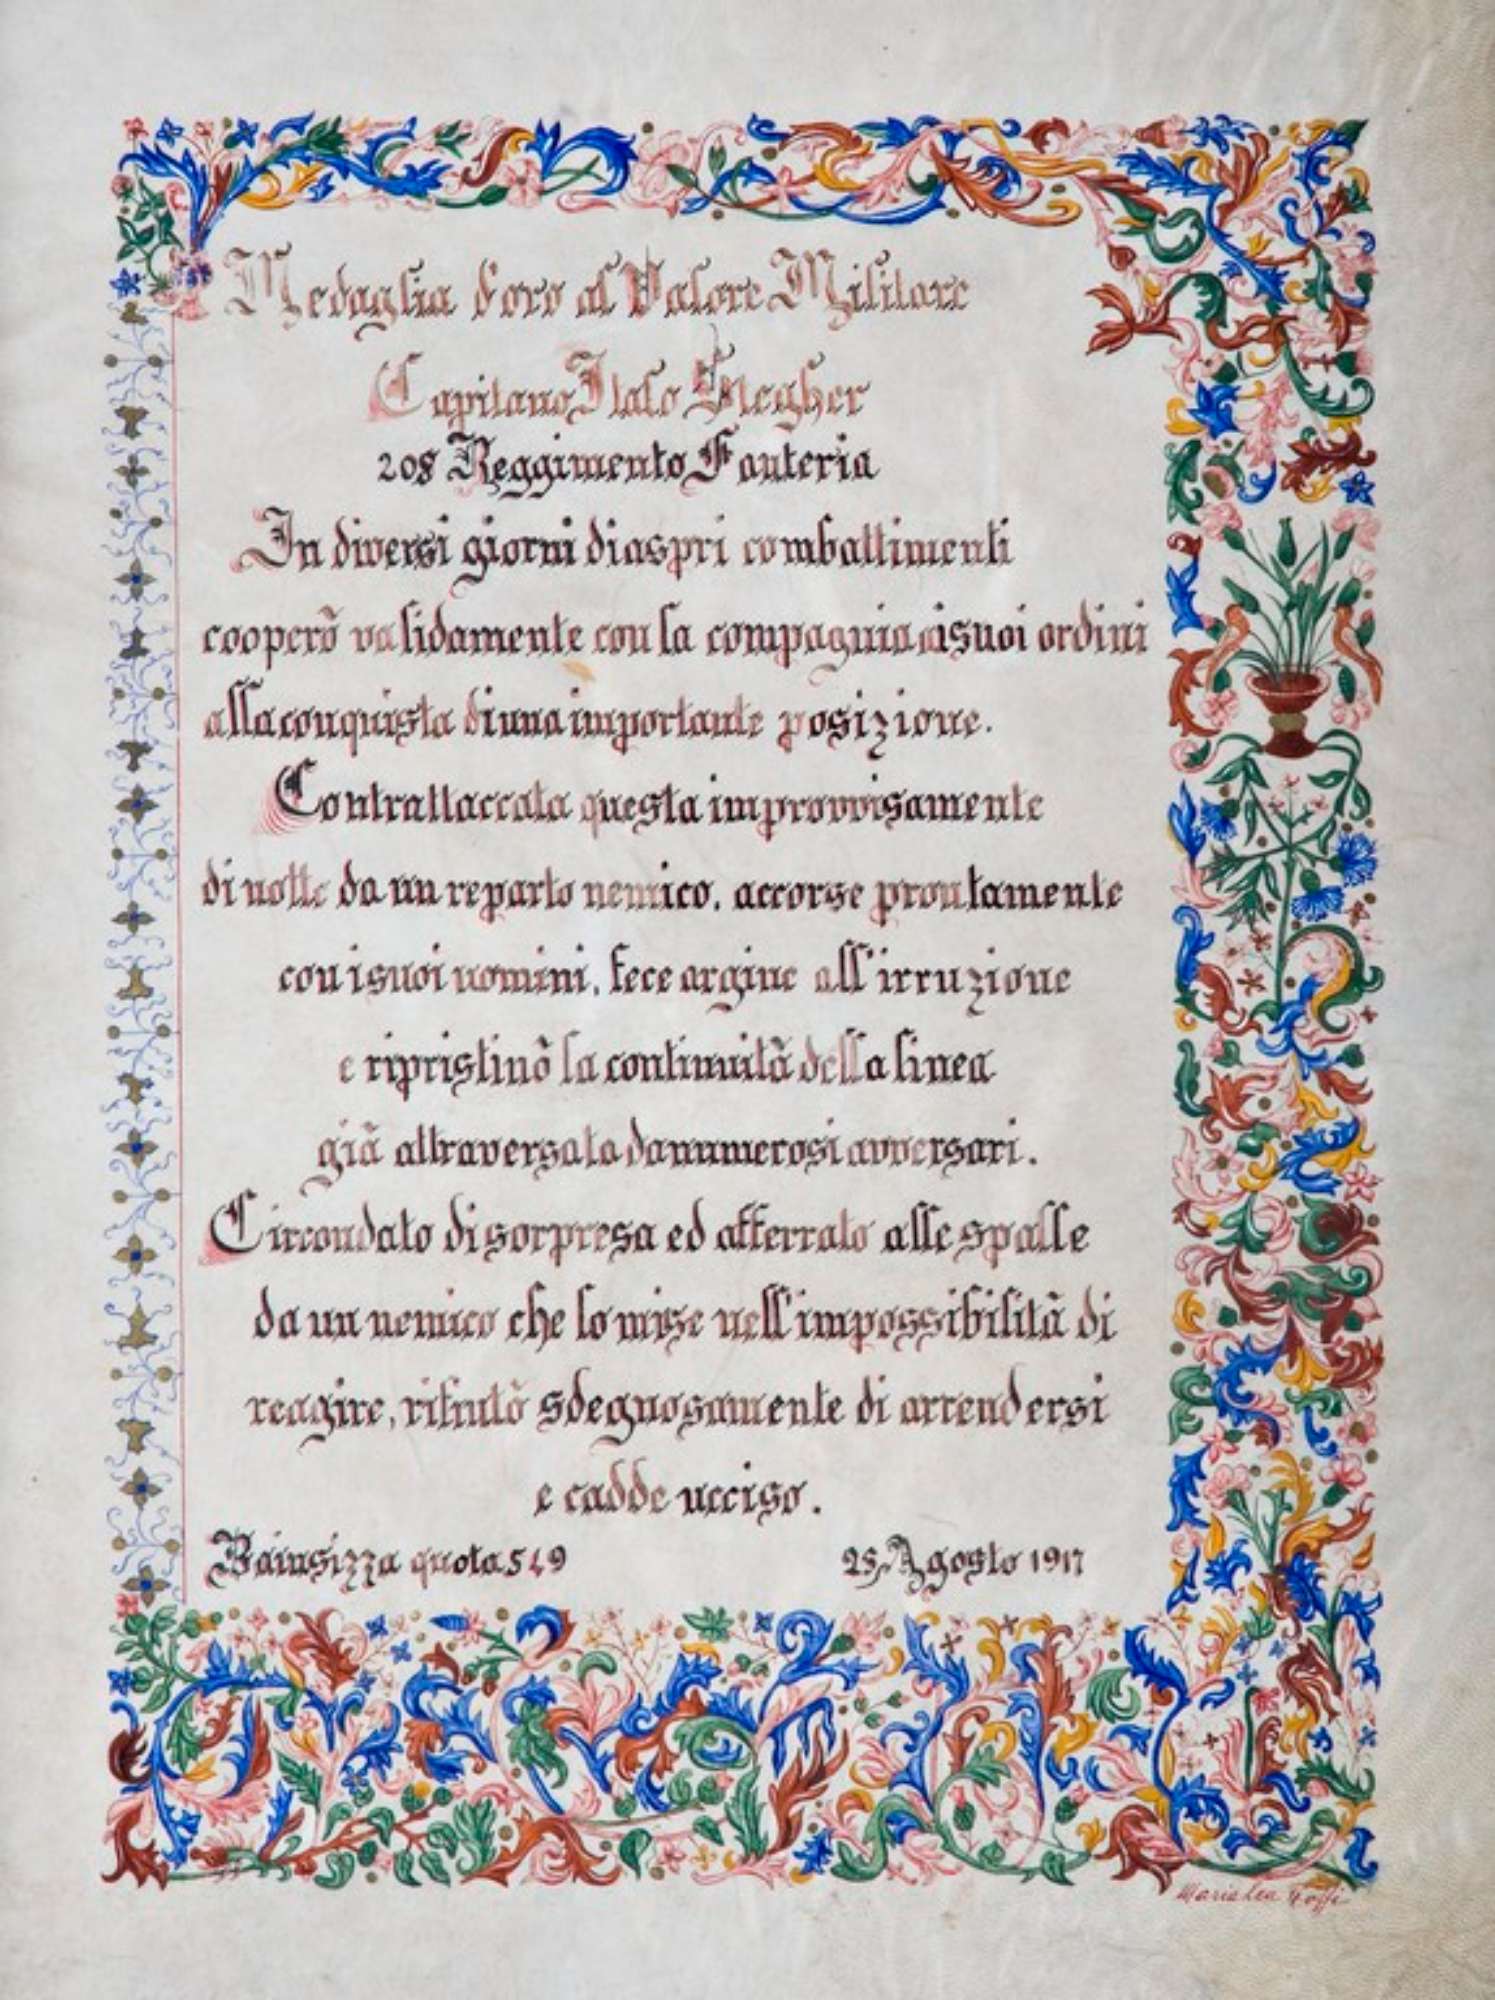 Medaglia d'oro al Valore Militare
Capitano Italo Stegher
208 Reggimento Fanteria
In diversi giorni di aspri combattimenti
cooperò validamente con la compagnia ai suoi ordini
alla conquista di una importante posizione.
Contrattaccata questa improvvisamente
di notte da un reparto nemico, accorse prontamente
con i suoi uomini, fece argine all'irruzione
e ripristinò la continuità della linea
già attraversata da numerosi avversari.
Circondato di sorpresa ed afferrato alle spalle
da un nemico che lo mise nell'impossibilità di
reagire, rifiutò sdegnosamente di arrendersi
e cadde ucciso.
Bainsizza quota 549 25 Agosto 1917
Maria Lea